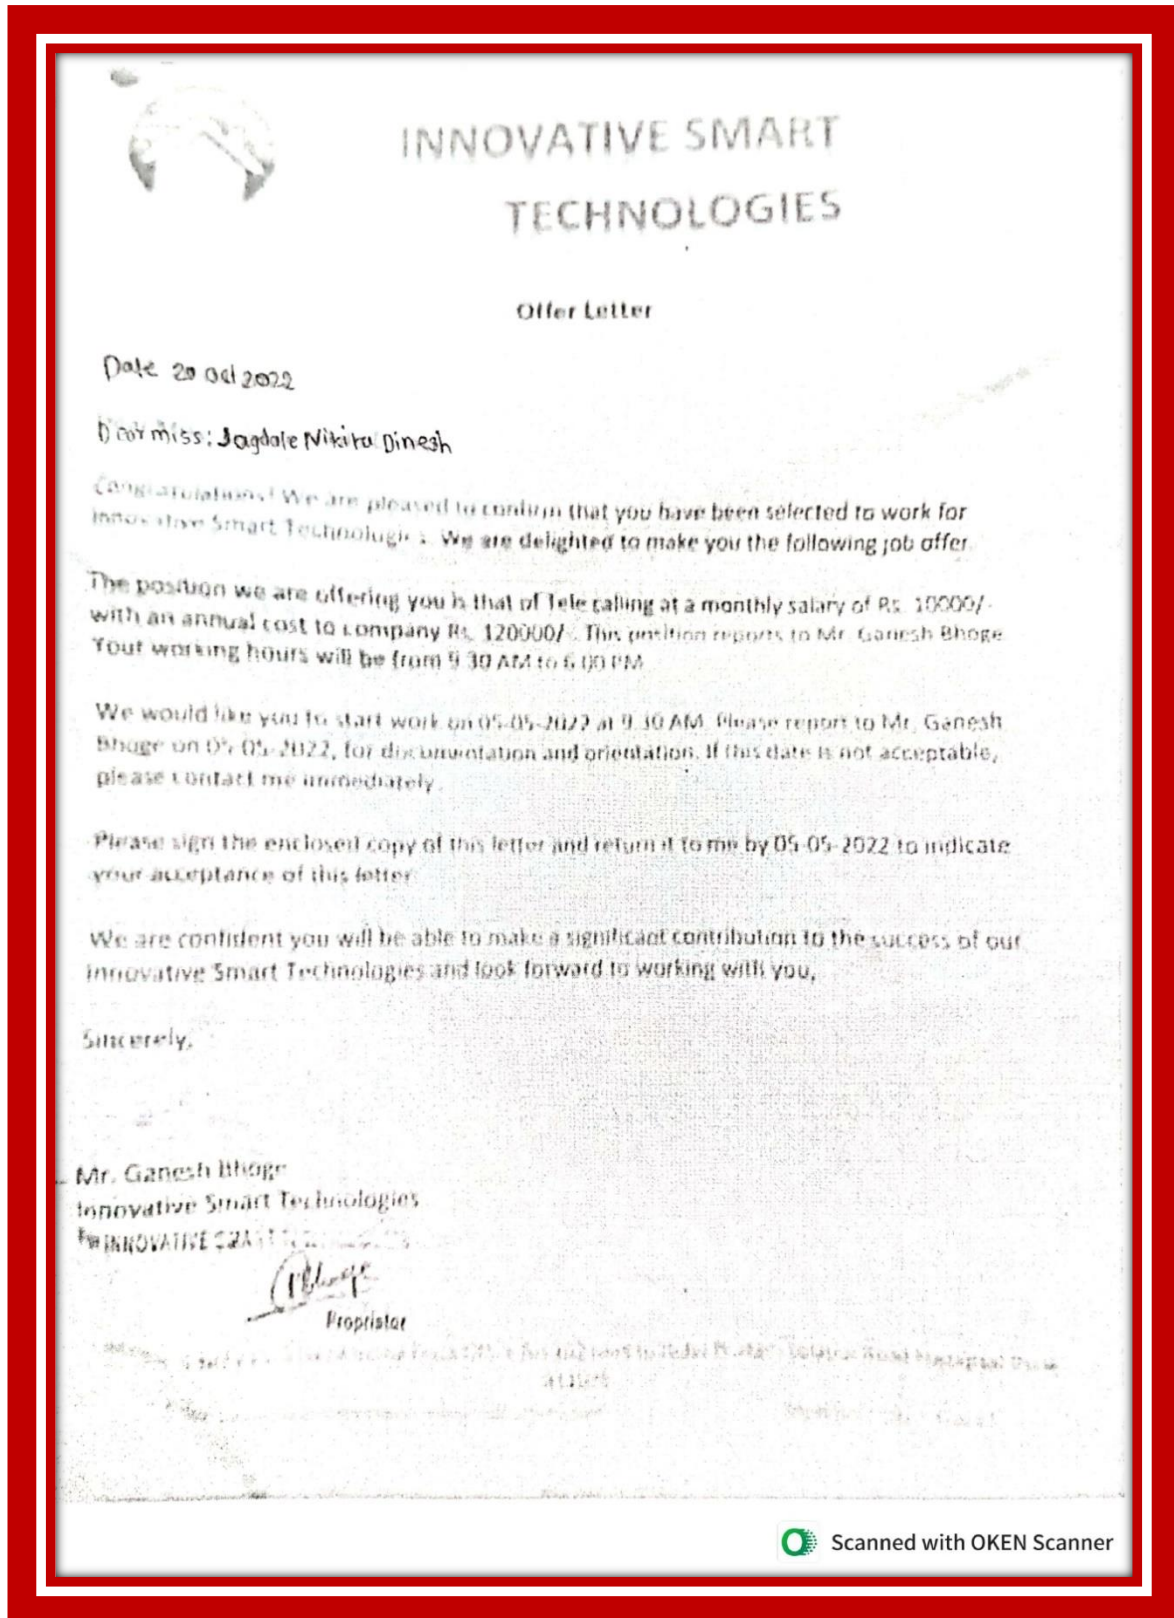 INNOVATIVE SMART
TECHNOLOGIES
Offer Letter
Date 20 Oct 2022
Dear miss: Jagdale Nikita Dinesh
Congratulations! We are pleased to confirm that you have been selected to work for
Innovative Smart Technologies. We are delighted to make you the following job offer.
The position we are offering you is that of Tele calling at a monthly salary of Rs. 10000/-
with an annual cost to company Rs. 120000/-. This position reports to Mr. Ganesh Bhoge
Your working hours will be from 9.30 AM to 6.00 PM
We would like you to start work on 05-05-2022 at 9.30 AM. Please report to Mr. Ganesh
Bhoge on 05-05-2022, for documentation and orientation. If this date is not acceptable,
please contact me immediately.
Please sign the enclosed copy of this letter and return it to me by 05-05-2022 to indicate
your acceptance of this letter
We are confident you will be able to make a significant contribution to the success of our
Innovative Smart Technologies and look forward to working with you,
Sincerely,
Mr. Ganesh Bhoge
Innovative Smart Technologies
For INNOVATIVE SMART TECHNOLOGIES
Proprietor
Road
Scanned with OKEN Scanner